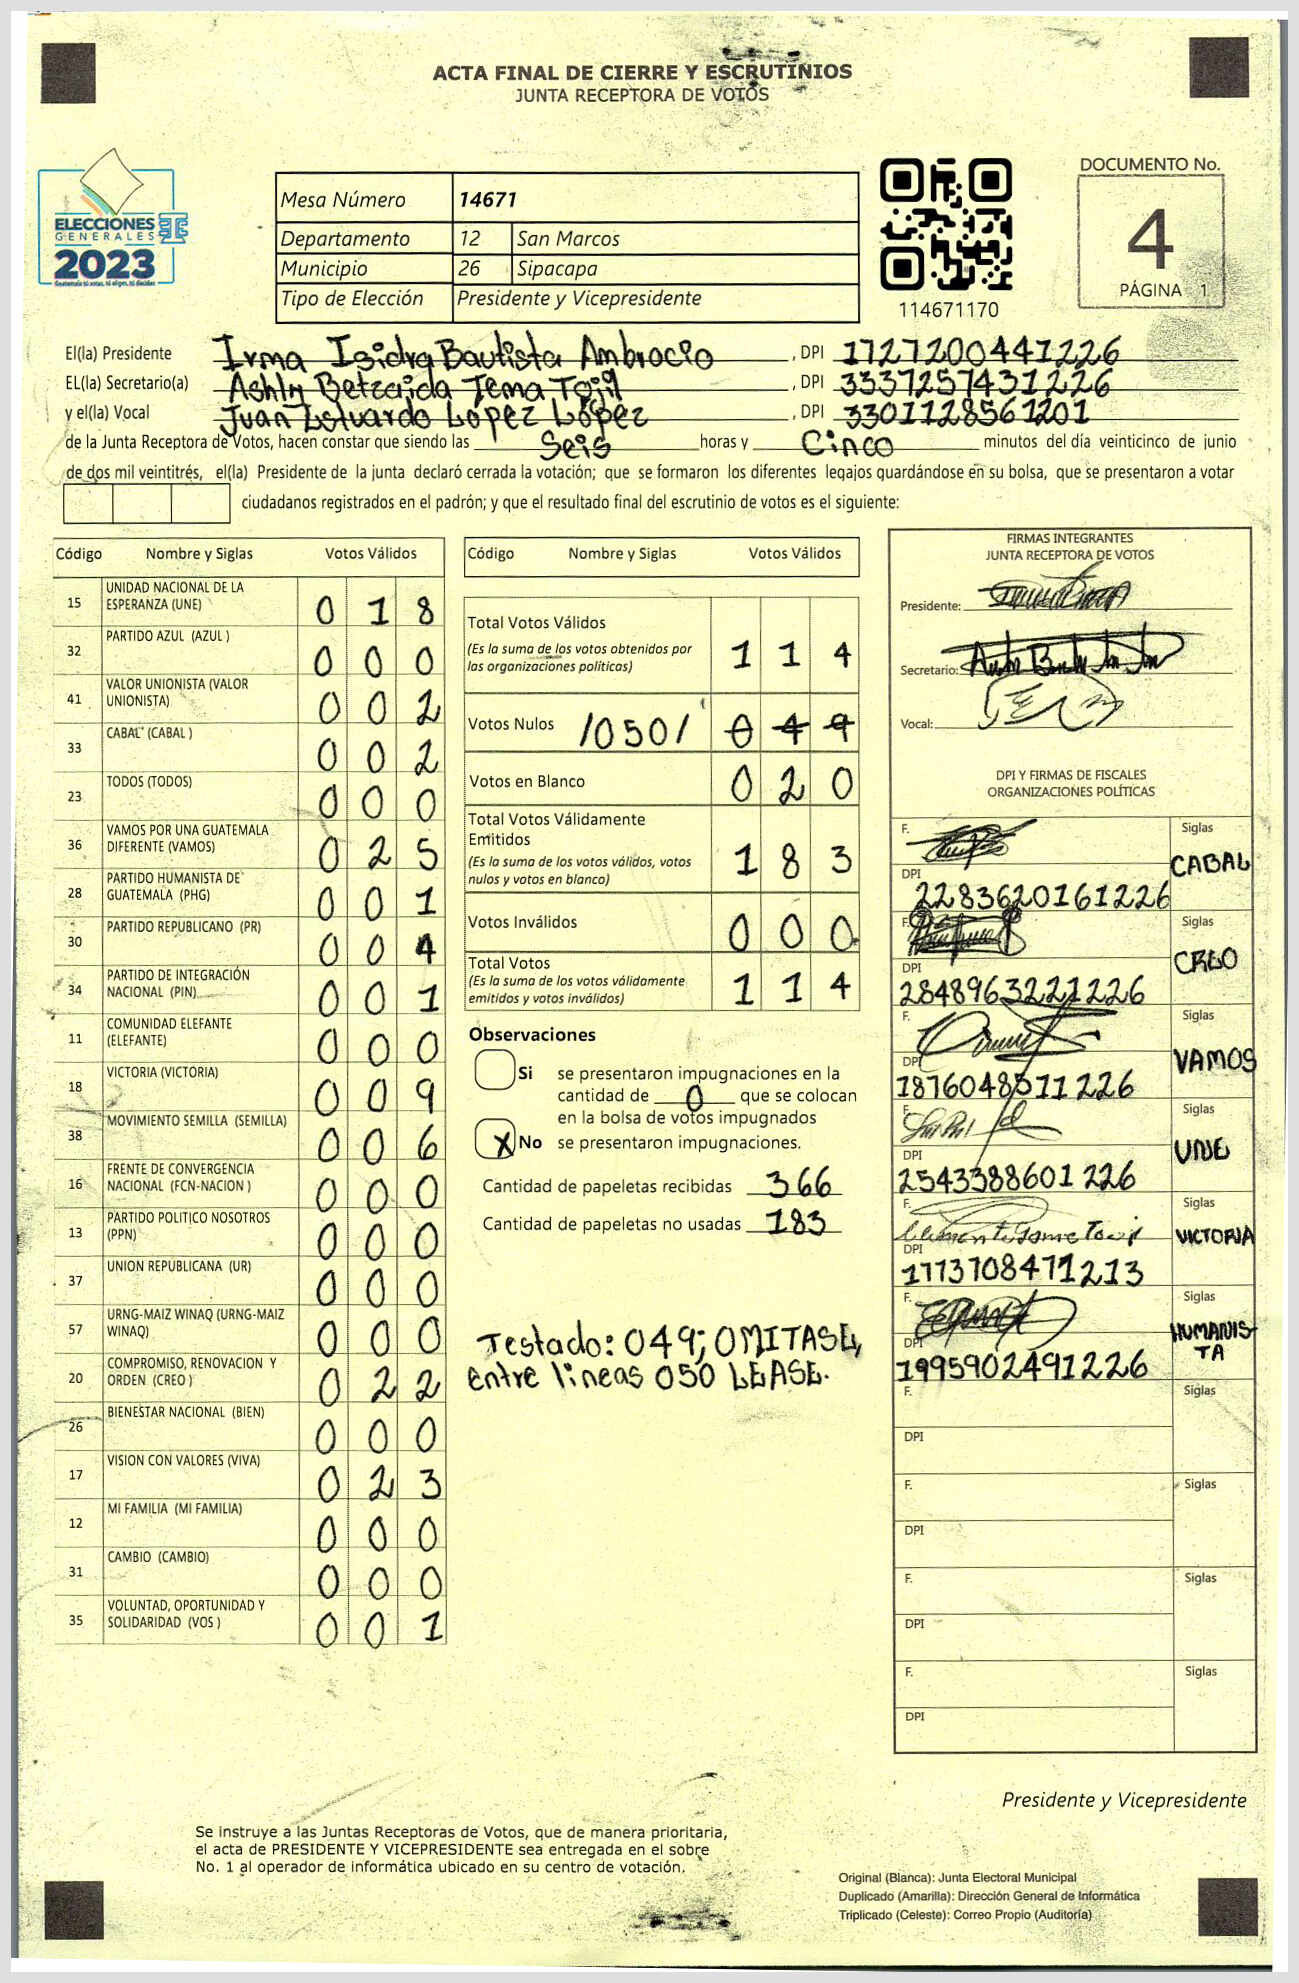 ACTA FINAL DE CIERRE Y ESCRUTINIOS
JUNTA RECEPTORA DE VOTOS
ELECCIONES
GENERALES
2023
Guatemala tú votas, tú eliges, tú decides
Mesa Número 14671
Departamento 12 San Marcos
Municipio 26 Sipacapa
Tipo de Elección Presidente y Vicepresidente
114671170
DOCUMENTO No.
4
PÁGINA 1
El(la) Presidente Irma Isidra Bautista Ambrocio , DPI 1727200441226
EL(la) Secretario(a) Ashly Betzaida Tema Tojil , DPI 3337257431226
y el(la) Vocal Juan Estuardo López López , DPI 3301128561201
de la Junta Receptora de Votos, hacen constar que siendo las Seis horas y Cinco minutos del día veinticinco de junio
de dos mil veintitrés, el(la) Presidente de la junta declaró cerrada la votación; que se formaron los diferentes legajos guardándose en su bolsa, que se presentaron a votar
ciudadanos registrados en el padrón; y que el resultado final del escrutinio de votos es el siguiente:
Código Nombre y Siglas Votos Válidos
15 UNIDAD NACIONAL DE LA
ESPERANZA (UNE) 0 1 8
32 PARTIDO AZUL (AZUL ) 0 0 0
41 VALOR UNIONISTA (VALOR
UNIONISTA) 0 0 2
33 CABAL (CABAL ) 0 0 2
23 TODOS (TODOS) 0 0 0
36 VAMOS POR UNA GUATEMALA
DIFERENTE (VAMOS) 0 2 5
28 PARTIDO HUMANISTA DE
GUATEMALA (PHG) 0 0 1
30 PARTIDO REPUBLICANO (PR) 0 0 4
34 PARTIDO DE INTEGRACIÓN
NACIONAL (PIN) 0 0 1
11 COMUNIDAD ELEFANTE
(ELEFANTE) 0 0 0
18 VICTORIA (VICTORIA) 0 0 9
38 MOVIMIENTO SEMILLA (SEMILLA) 0 0 6
16 FRENTE DE CONVERGENCIA
NACIONAL (FCN-NACION ) 0 0 0
13 PARTIDO POLITICO NOSOTROS
(PPN) 0 0 0
37 UNION REPUBLICANA (UR) 0 0 0
57 URNG-MAIZ WINAQ (URNG-MAIZ
WINAQ) 0 0 0
20 COMPROMISO, RENOVACION Y
ORDEN (CREO ) 0 2 2
26 BIENESTAR NACIONAL (BIEN) 0 0 0
17 VISION CON VALORES (VIVA) 0 2 3
12 MI FAMILIA (MI FAMILIA) 0 0 0
31 CAMBIO (CAMBIO) 0 0 0
35 VOLUNTAD, OPORTUNIDAD Y
SOLIDARIDAD (VOS ) 0 0 1
Código Nombre y Siglas Votos Válidos
Total Votos Válidos
(Es la suma de los votos obtenidos por
las organizaciones políticas) 1 1 4
Votos Nulos /050/ 0 4 9
Votos en Blanco 0 2 0
Total Votos Válidamente
Emitidos
(Es la suma de los votos válidos, votos
nulos y votos en blanco) 1 8 3
Votos Inválidos 0 0 0
Total Votos
(Es la suma de los votos válidamente
emitidos y votos inválidos) 1 1 4
Observaciones
Si se presentaron impugnaciones en la
cantidad de 0 que se colocan
en la bolsa de votos impugnados
X No se presentaron impugnaciones.
Cantidad de papeletas recibidas 366
Cantidad de papeletas no usadas 183
Testado: 049; OMITASE,
entre lineas 050 LEASE.
FIRMAS INTEGRANTES
JUNTA RECEPTORA DE VOTOS
Presidente:
Secretario:
Vocal:
DPI Y FIRMAS DE FISCALES
ORGANIZACIONES POLÍTICAS
F. Siglas
CABAL
DPI
2283620161226
F. Siglas
CREO
DPI
2848963221226
F. Siglas
VAMOS
DPI
1876048511226
F. Siglas
UNE
DPI
2543388601226
F. Siglas
VICTORIA
DPI
1773708471213
F. Siglas
HUMANIS-
TA
DPI
1995902491226
F. Siglas
DPI
F. Siglas
DPI
F. Siglas
DPI
F. Siglas
DPI
Presidente y Vicepresidente
Se instruye a las Juntas Receptoras de Votos, que de manera prioritaria,
el acta de PRESIDENTE Y VICEPRESIDENTE sea entregada en el sobre
No. 1 al operador de informática ubicado en su centro de votación.
Original (Blanca): Junta Electoral Municipal
Duplicado (Amarilla): Dirección General de Informática
Triplicado (Celeste): Correo Propio (Auditoría)